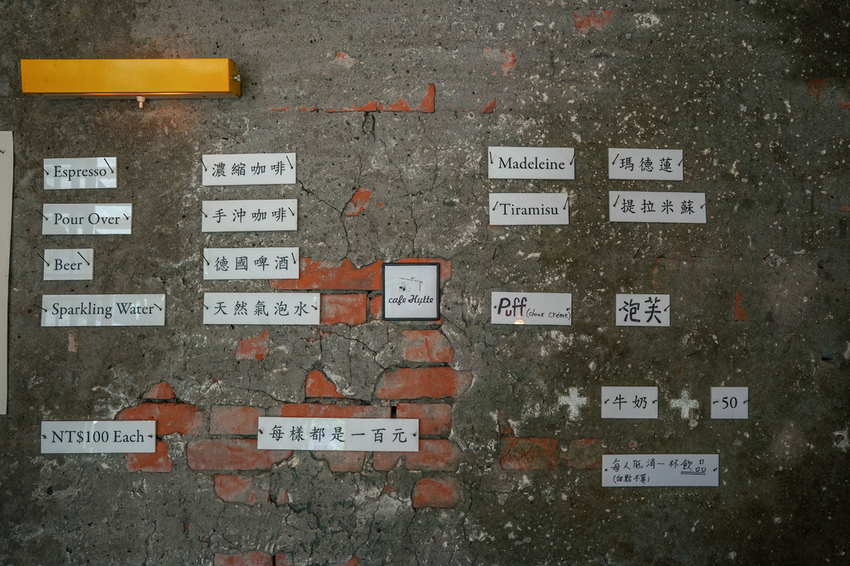 Espresso
濃縮咖啡
Pour Over
手沖咖啡
Beer
德國啤酒
Sparkling Water
天然氣泡水
NT$100 Each
每樣都是一百元
cafe Hytte
Madeleine
瑪德蓮
Tiramisu
提拉米蘇
Puff (choux crème)
泡芙
+ 牛奶 + 50
每人低消一杯飲品
(甜點不算)